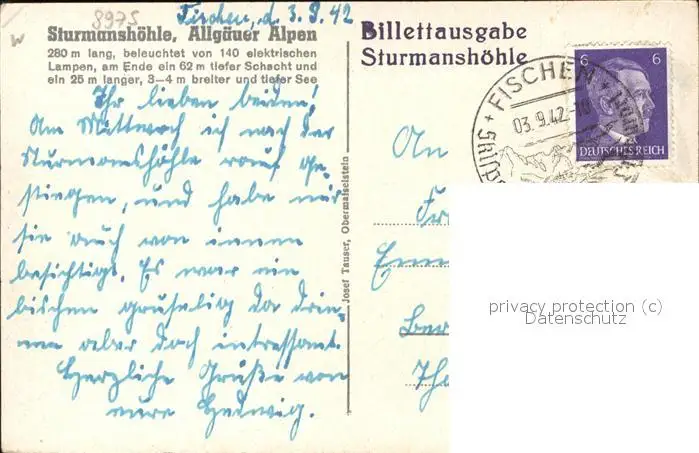 8975
Fischen, d. 3.9.42
w
Sturmanshöhle, Allgäuer Alpen
280 m lang, beleuchtet von 140 elektrischen
Lampen, am Ende ein 62 m tiefer Schacht und
ein 25 m langer, 3–4 m breiter und tiefer See
Billettausgabe
Sturmanshöhle
6 6
DEUTSCHES REICH
+ FISCHEN +
03.9.42.-10
Ihr lieben beiden!
Am Mittwoch ich nach der
Sturmanshöhle rauf ge-
stiegen, und habe mir
sie auch von innen
besichtigt. Es war ein
bischen gruselig da drin-
nen aber doch intressant.
Herzliche Grüße von
eure Hedwig.
Josef Tauser, Obermaiselstein
An
Fr
Emm
Ber
Th
privacy protection (c)
Datenschutz